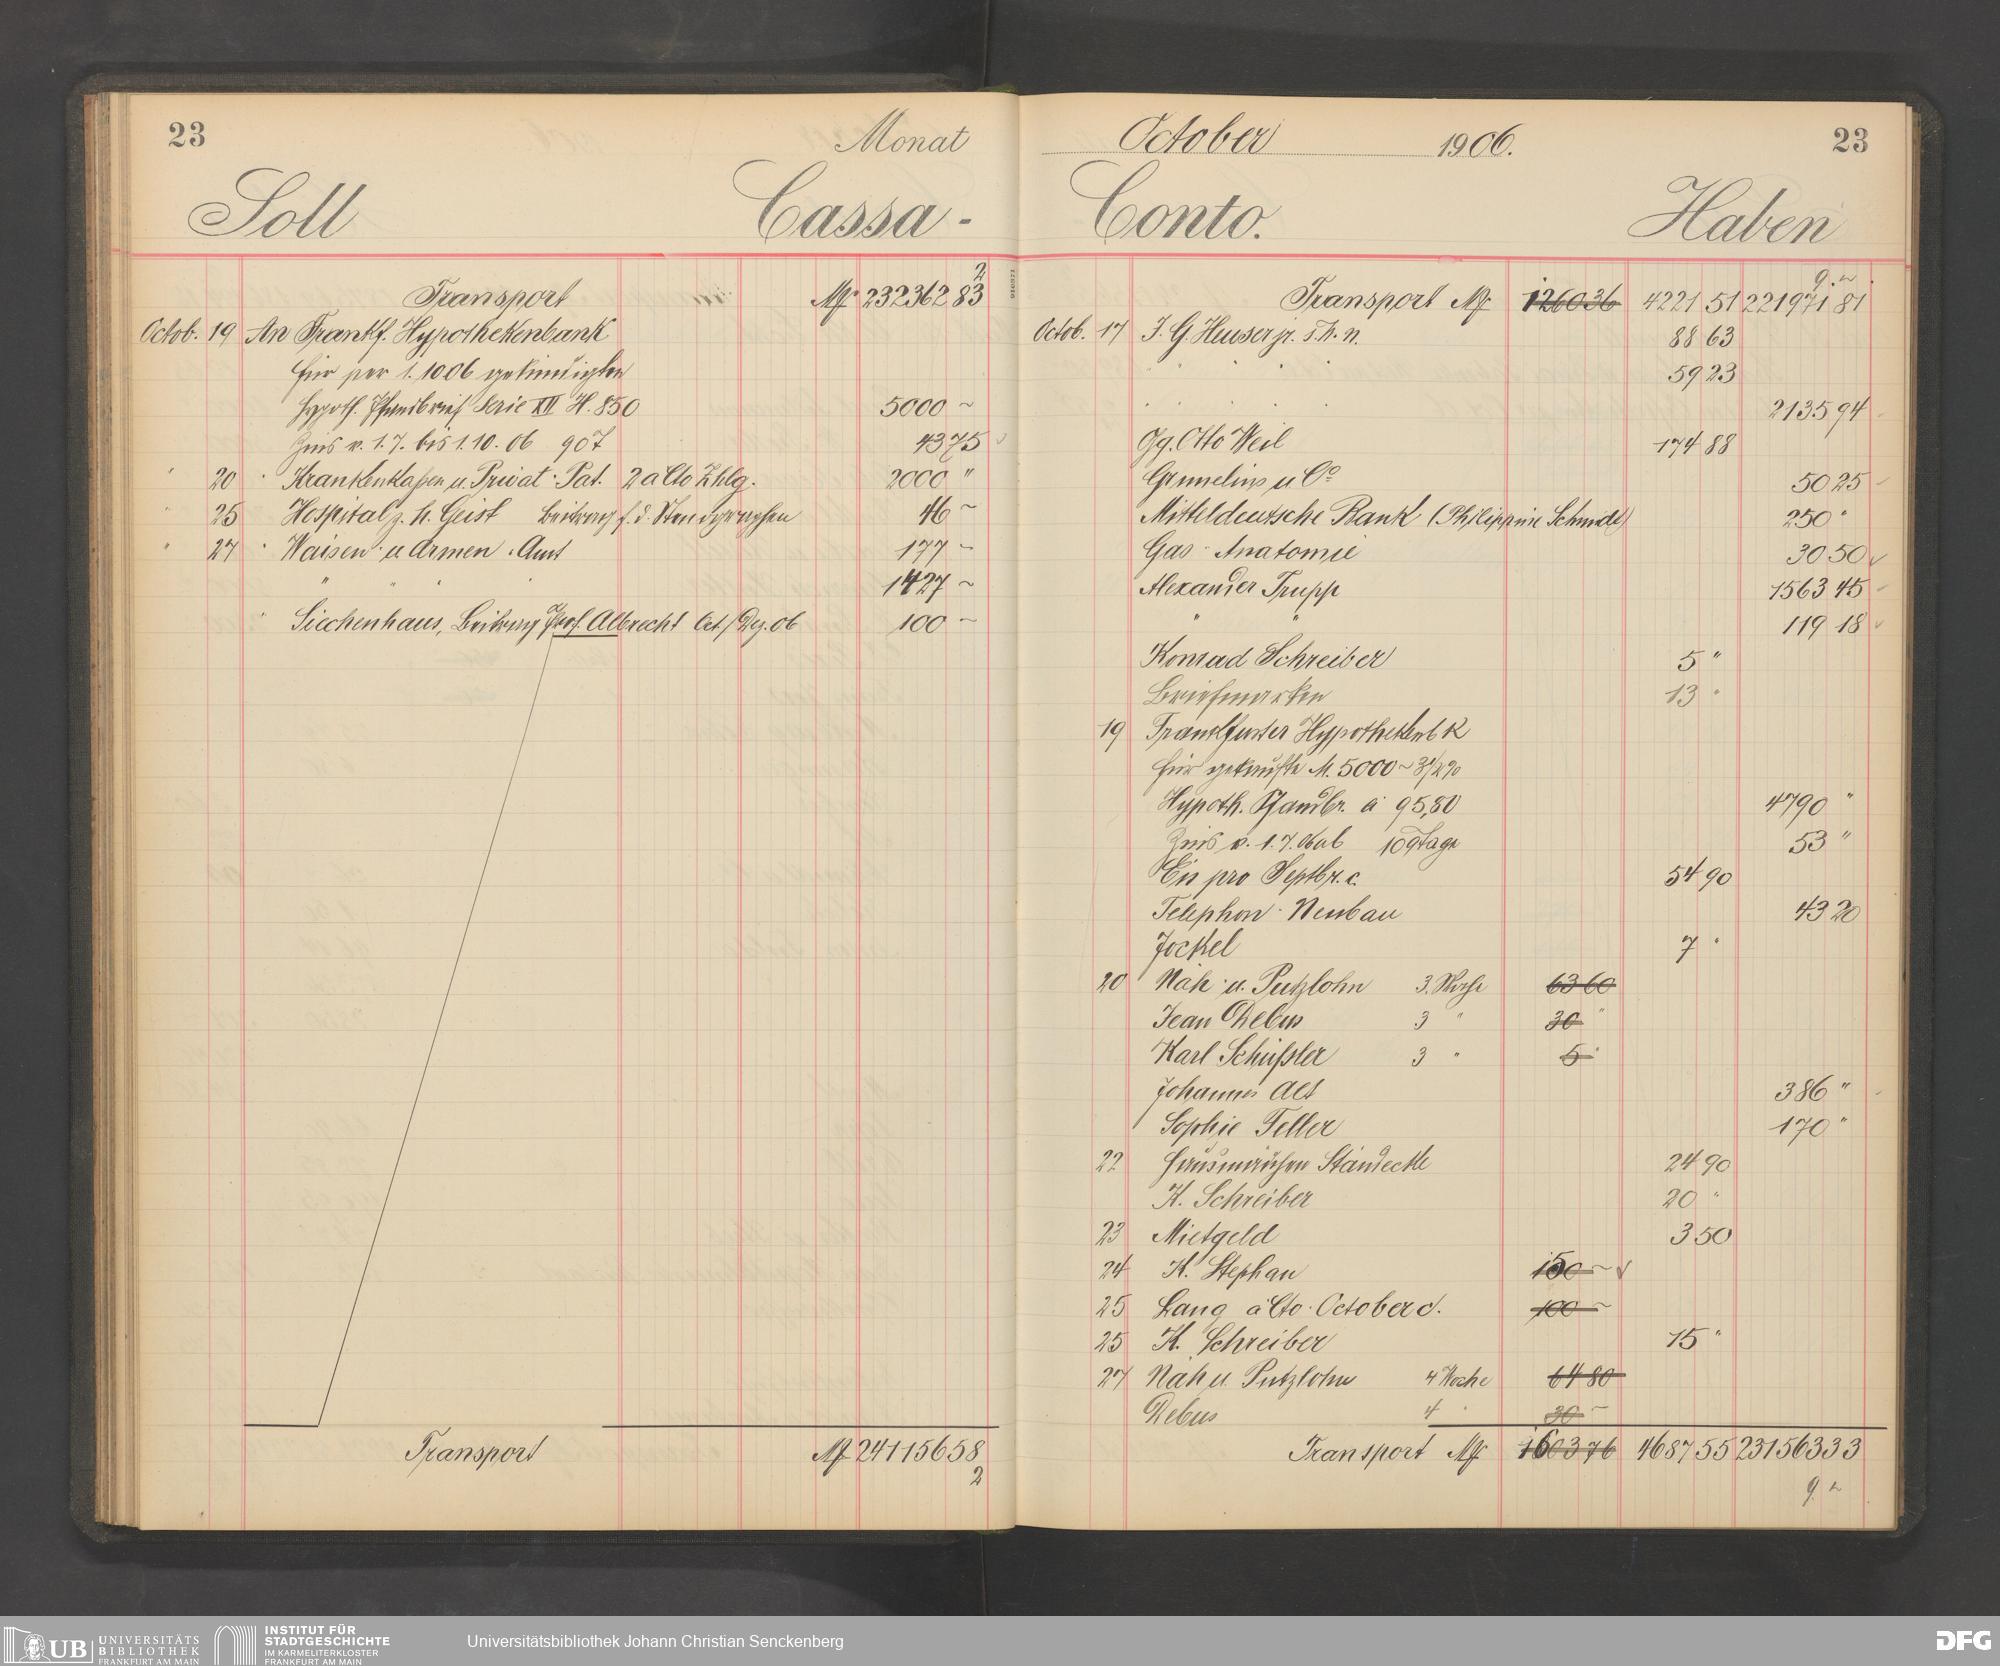 23
Monat
Soll
Cassa-
2
Transport M 232362 83
Octob. 19 An Frankf. Hypothekenbank
für per 1.10.06 gekündigten
Hypoth. Pfandbrief Serie XII H. 850 5000 ~
Zins v. 1.7. bis 1.10.06 90 T 43 75
" 20 " Krankenkaßen u. Privat-Pat. 2 a Cto Zhlg. 2000 "
" 25 Hospital z. h. Geist Beitrag f. d. Stenographen 46 ~
" 27 " Waisen- u. Armen-Amt 177 ~
" " " 1427 ~
" Siechenhaus, Beitrag Prof. Albrecht Oct./Dez. 06 100 ~
Transport M 241156 58
2
October 1906.
23
Conto.
Haben
9. ~
Transport M 1260 36 4221 51 221971 81
Octob. 17 J. G. Heuser jr. 88 63
" " " " 59 23
" " " " 2135 94
Gg. Otto Weil 174 88
Grunelius u. Co 50 25
Mitteldeutsche Bank (Philippine Schmidt) 250 "
Gas-Anatomie 30 50
Alexander Trupp 1563 45
" " 119 18
Konrad Schreiber 5 "
Briefmarken 13 "
19 Frankfurter Hypothekenbk
für gekaufte M. 5000 ~ 3 1/2 %
Hypoth. Pfandbr. à 95,80 4790 "
Zins v. 1.7.06 ab 109 Tage 53 "
Eis pro Septbr. c. 54 90
Telephon-Neubau 43 20
Jockel 7 "
20 Näh- u. Putzlohn 3. Woche 63 60
Jean Debus 3 " 30 "
Karl Schüßler 3 " 5 "
Johannes Alt 386 "
Sophie Teller 170 "
22 Hausmädchen Ständecke 24 90
K. Schreiber 20 "
23 Mietgeld 3 50
24 K. Stephan 150 ~
25 Lang a Cto October c. 100 ~
25 K. Schreiber 15 "
27 Näh u. Putzlohn 4 Woche 64 80
Debus 4 " 30 ~
Transport M 1603 76 4687 55 231563 33
9. ~
UB UNIVERSITÄTS
BIBLIOTHEK
FRANKFURT AM MAIN
INSTITUT FÜR
STADTGESCHICHTE
IM KARMELITERKLOSTER
FRANKFURT AM MAIN
Universitätsbibliothek Johann Christian Senckenberg
DFG